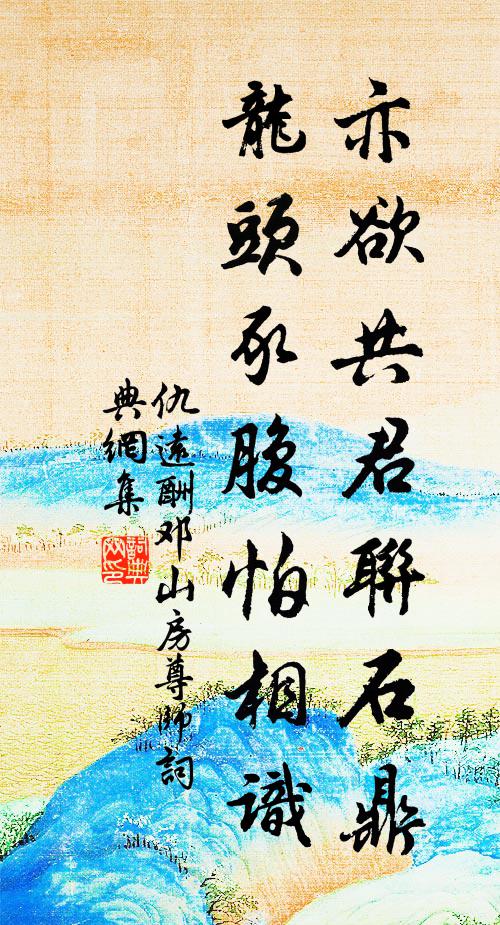 亦欲共君聯石鼎
龍頭豕腹怕相識
仇遠酬邓山房尊師詞
典網集
詞典網印